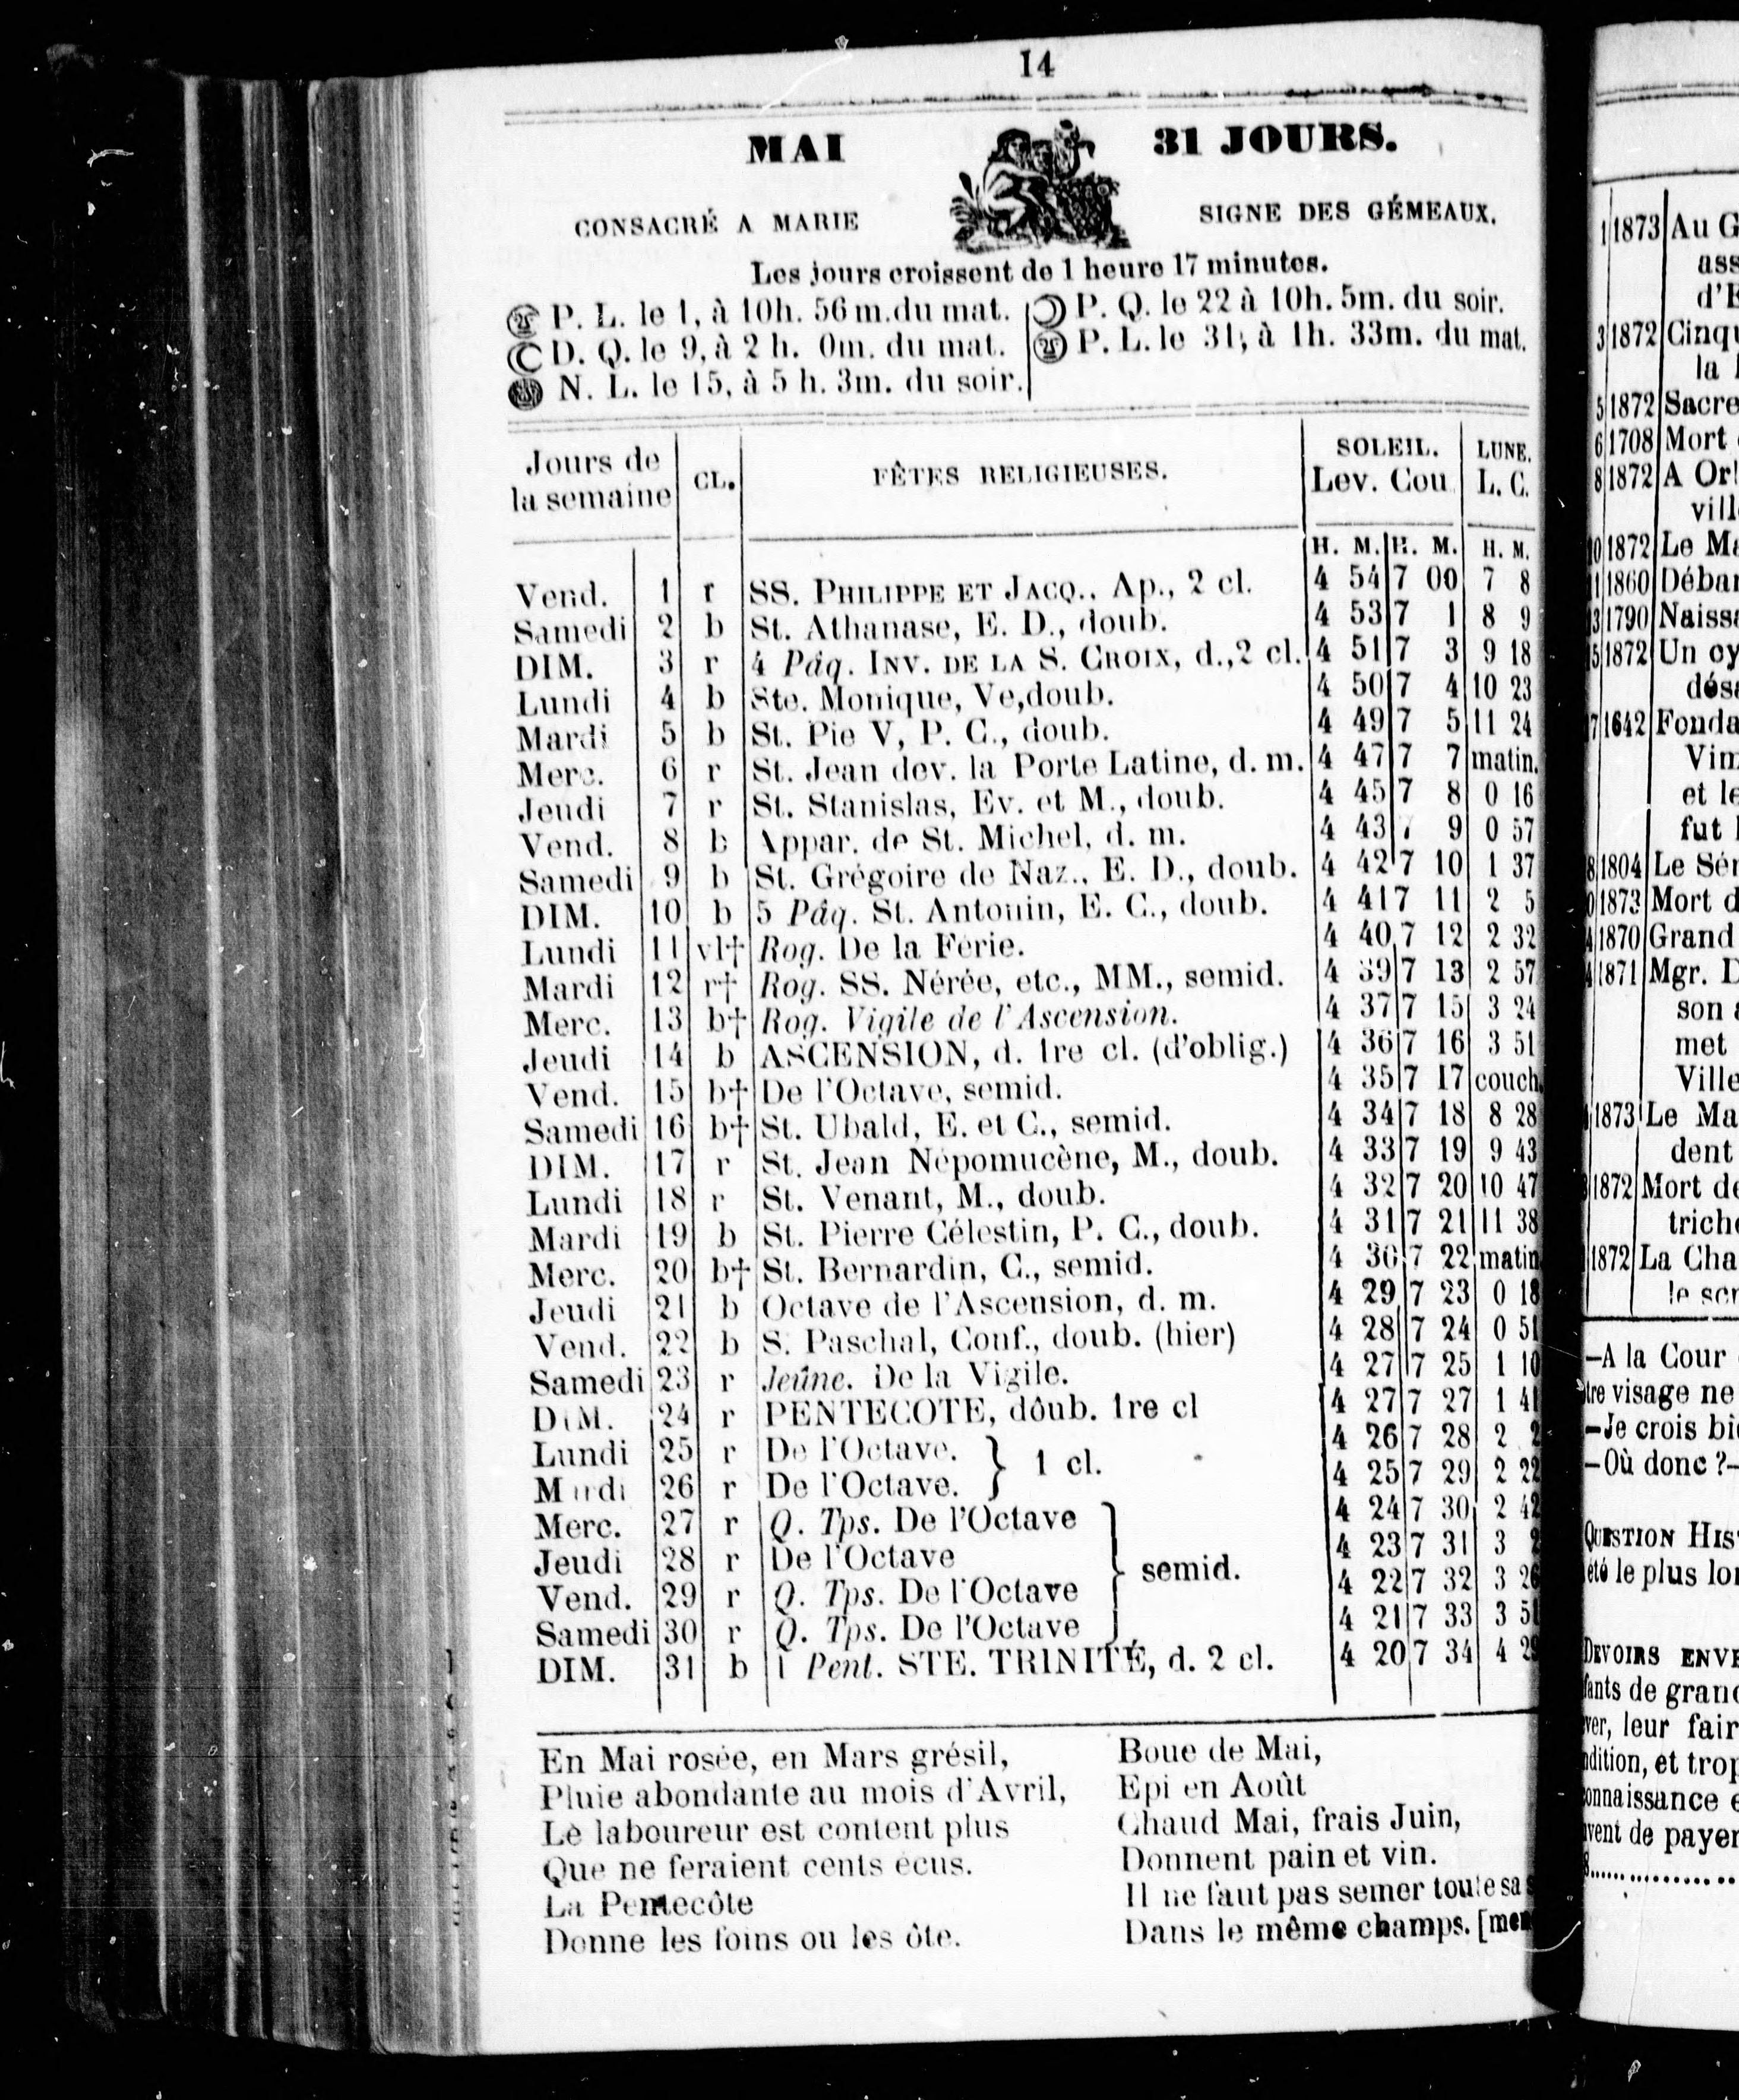 14
MAI 31 JOURS.
CONSACRÉ A MARIE SIGNE DES GÉMEAUX.
Les jours croissent de 1 heure 17 minutes.
P. L. le 1, à 10h. 56m. du mat.
D. Q. le 9, à 2 h. 0m. du mat.
N. L. le 15, à 5 h. 3m. du soir.
P. Q. le 22 à 10h. 5m. du soir.
P. L. le 31, à 1h. 33m. du mat.
Jours de la semaine CL. FÊTES RELIGIEUSES. SOLEIL. Lev. Cou LUNE. L. C.
H. M. H. M. H. M.
Vend. 1 r SS. PHILIPPE ET JACQ., Ap., 2 cl. 4 54 7 00 7 8
Samedi 2 b St. Athanase, E. D., doub. 4 53 7 1 8 9
DIM. 3 r 4 Pâq. INV. DE LA S. CROIX, d., 2 cl. 4 51 7 3 9 18
Lundi 4 b Ste. Monique, Ve, doub. 4 50 7 4 10 23
Mardi 5 b St. Pie V, P. C., doub. 4 49 7 5 11 24
Merc. 6 r St. Jean dev. la Porte Latine, d. m. 4 47 7 7 matin.
Jeudi 7 r St. Stanislas, Ev. et M., doub. 4 45 7 8 0 16
Vend. 8 b Appar. de St. Michel, d. m. 4 43 7 9 0 57
Samedi 9 b St. Grégoire de Naz., E. D., doub. 4 42 7 10 1 37
DIM. 10 b 5 Pâq. St. Antonin, E. C., doub. 4 41 7 11 2 5
Lundi 11 vl† Rog. De la Férie. 4 40 7 12 2 32
Mardi 12 r† Rog. SS. Nérée, etc., MM., semid. 4 39 7 13 2 57
Merc. 13 b† Rog. Vigile de l'Ascension. 4 37 7 15 3 24
Jeudi 14 b ASCENSION, d. 1re cl. (d'oblig.) 4 36 7 16 3 51
Vend. 15 b† De l'Octave, semid. 4 35 7 17 couch.
Samedi 16 b† St. Ubald, E. et C., semid. 4 34 7 18 8 28
DIM. 17 r St. Jean Népomucène, M., doub. 4 33 7 19 9 43
Lundi 18 r St. Venant, M., doub. 4 32 7 20 10 47
Mardi 19 b St. Pierre Célestin, P. C., doub. 4 31 7 21 11 38
Merc. 20 b† St. Bernardin, C., semid. 4 30 7 22 matin
Jeudi 21 b Octave de l'Ascension, d. m. 4 29 7 23 0 18
Vend. 22 b S. Paschal, Conf., doub. (hier) 4 28 7 24 0 51
Samedi 23 r Jeûne. De la Vigile. 4 27 7 25 1 10
DIM. 24 r PENTECOTE, dôub. 1re cl 4 27 7 27 1 41
Lundi 25 r De l'Octave. } 1 cl. 4 26 7 28 2 2
Mardi 26 r De l'Octave. 4 25 7 29 2 22
Merc. 27 r Q. Tps. De l'Octave 4 24 7 30 2 42
Jeudi 28 r De l'Octave } semid. 4 23 7 31 3 2
Vend. 29 r Q. Tps. De l'Octave 4 22 7 32 3 26
Samedi 30 r Q. Tps. De l'Octave 4 21 7 33 3 51
DIM. 31 b 1 Pent. STE. TRINITÉ, d. 2 cl. 4 20 7 34 4 29
En Mai rosée, en Mars grésil,
Pluie abondante au mois d'Avril,
Le laboureur est content plus
Que ne feraient cents écus.
La Pentecôte
Donne les foins ou les ôte.
Boue de Mai,
Epi en Août
Chaud Mai, frais Juin,
Donnent pain et vin.
Il ne faut pas semer toute sa
Dans le même champs.
1 1873 Au
3 1872
la
5 1872 Sacre
6 1708 Mort
8 1872 A
1872 Le
1860
1790
1872 Un
1642
et
fut
1804 Le
1873 Mort
1870 Grand
1871 Mgr.
son
met
1873 Le
dent
1872 Mort
1872 La
—A la Cour
visage ne
—Je crois
—Où donc ?—
QUESTION
été le plus
DEVOIRS
de
leur
et
de